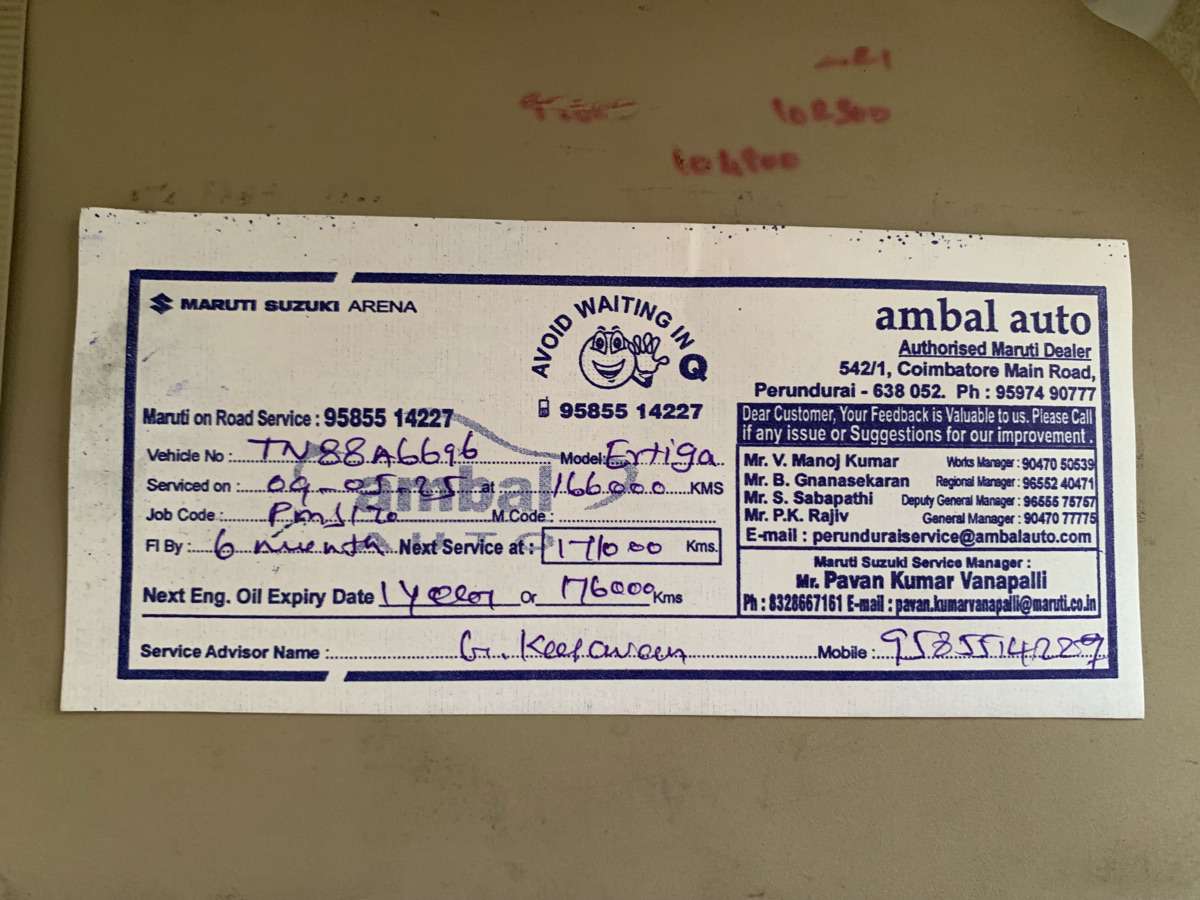 102500
104900
MARUTI SUZUKI ARENA
AVOID WAITING IN Q
95855 14227
Maruti on Road Service : 95855 14227
Vehicle No : TN88A6696 Model: Ertiga
Serviced on : 09-05-25 at 166000 KMS
Job Code : M.Code :
FI By : 6 Next Service at : 171000 Kms.
Next Eng. Oil Expiry Date 1 Year or 176000 Kms
Service Advisor Name : G. Mobile :
ambal
AUTO
ambal auto
Authorised Maruti Dealer
542/1, Coimbatore Main Road,
Perundurai - 638 052. Ph : 95974 90777
Dear Customer, Your Feedback is Valuable to us. Please Call
if any issue or Suggestions for our improvement .
Mr. V. Manoj Kumar Works Manager : 90470 50539
Mr. B. Gnanasekaran Regional Manager : 96552 40471
Mr. S. Sabapathi Deputy General Manager : 96555 75757
Mr. P.K. Rajiv General Manager : 90470 77775
E-mail : perunduraiservice@ambalauto.com
Maruti Suzuki Service Manager :
Mr. Pavan Kumar Vanapalli
Ph : 8328667161 E-mail : pavan.kumarvanapalli@maruti.co.in